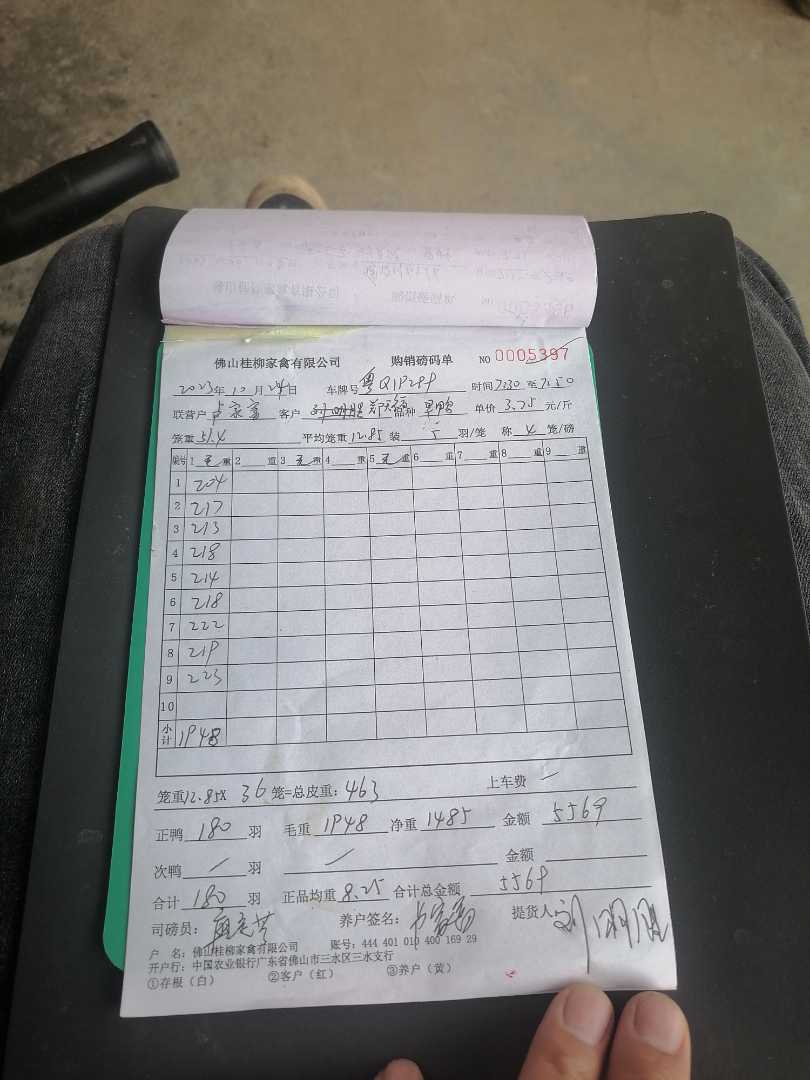 佛山桂柳家禽有限公司 购销磅码单 NO 0005397
2023年10月24日 车牌号 粤Q1P289 时间7:30至7:50
联营户 客户 刘明胜 郑天福 品种 单价 3.75 元/斤
笼重 51.4 平均笼重 12.85 装 5 羽/笼 称 4 笼/磅
栗号 1 毛重 2 重 3 毛重 4 重 5 毛重 6 重 7 重 8 重 9 重
1 204
2 217
3 213
4 218
5 214
6 218
7 222
8 219
9 223
10
小计 1948
笼重12.85× 36 笼=总皮重:463 上车费 —
正鸭 180 羽 毛重 1948 净重 1485 金额 5569
次鸭 / 羽 / 金额
合计 180 羽 正品均重 8.25 合计总金额 5569
司磅员: 养户签名: 提货人 刘明胜
户 名:佛山桂柳家禽有限公司 账号:444 401 010 400 169 29
开户行:中国农业银行广东省佛山市三水区三水支行
①存根(白) ②客户(红) ③养户(黄)